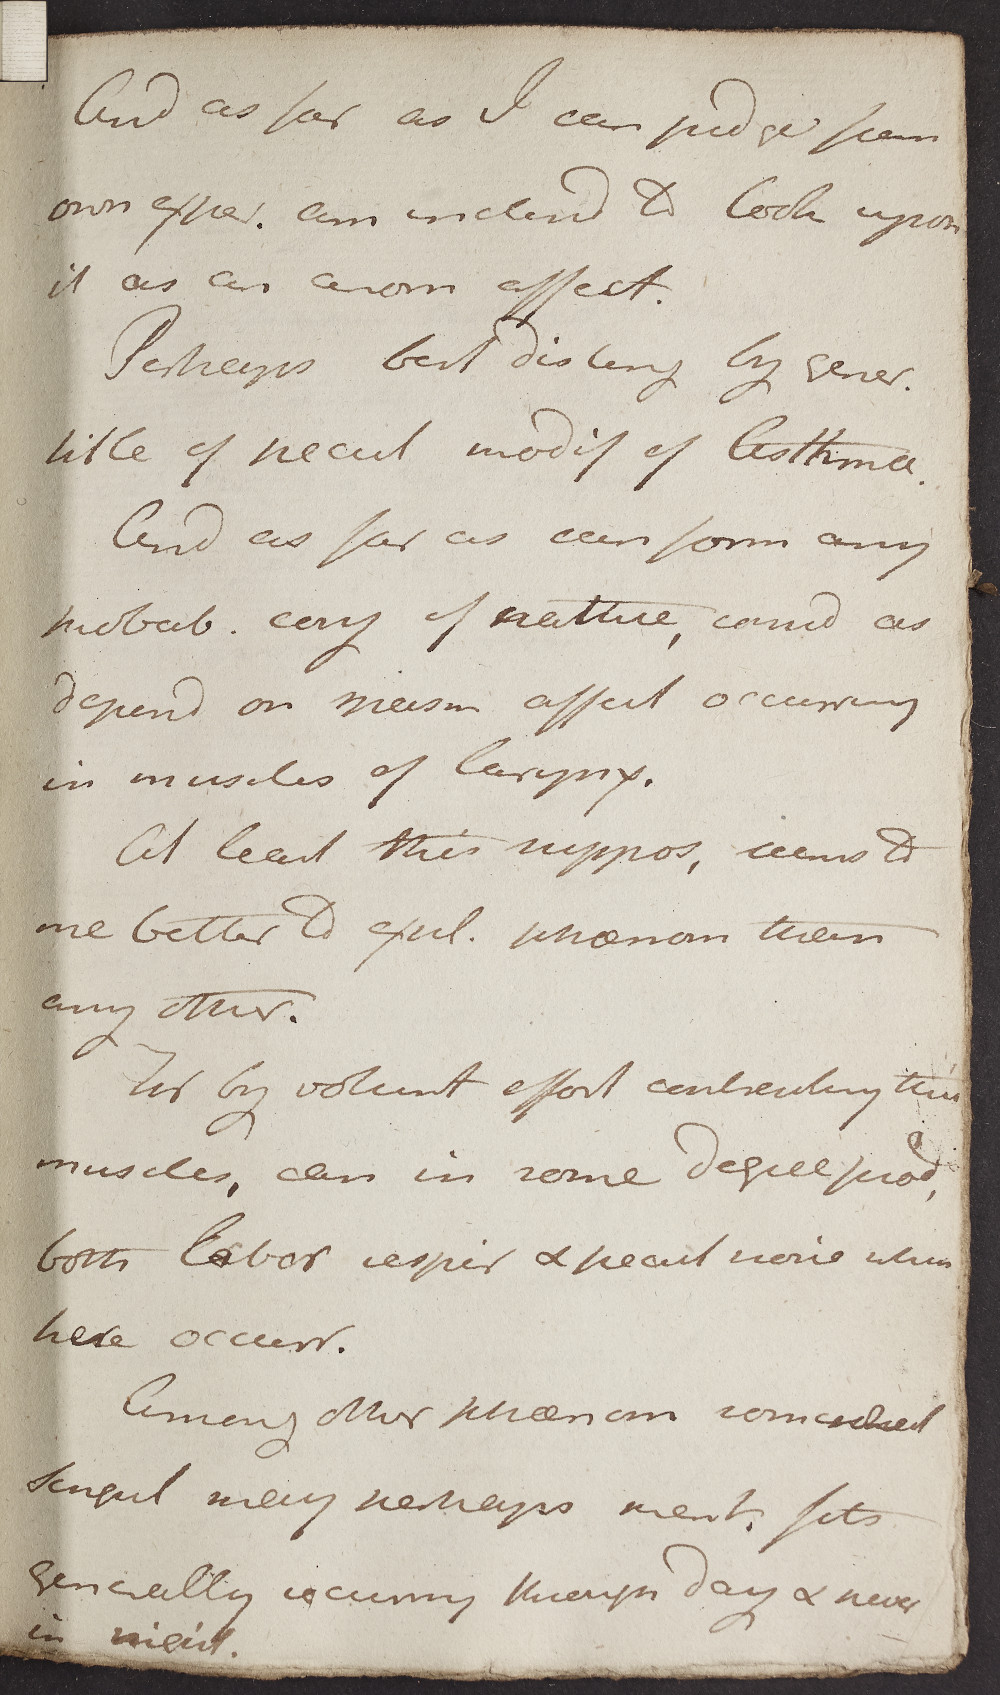 And as far as I can judge from
own exper. am inclind to look upon
it as an anom affect.
Perhaps best disting by gener.
title of pecul modif of Asthma.
And as far as can form any
probab. conj of nature, consid as
depend on spasm affect occurring
in muscles of larynx.
At least this suppos, seems to
me better to expl. phænom than
any other.
For by volunt effort contracting this
muscles, can in some degree prod,
both labor respir & pecul noise when
here occurr.
Among other phænom somewhat
singul may perhaps ment. fits
generally occurring through day & never
in night.